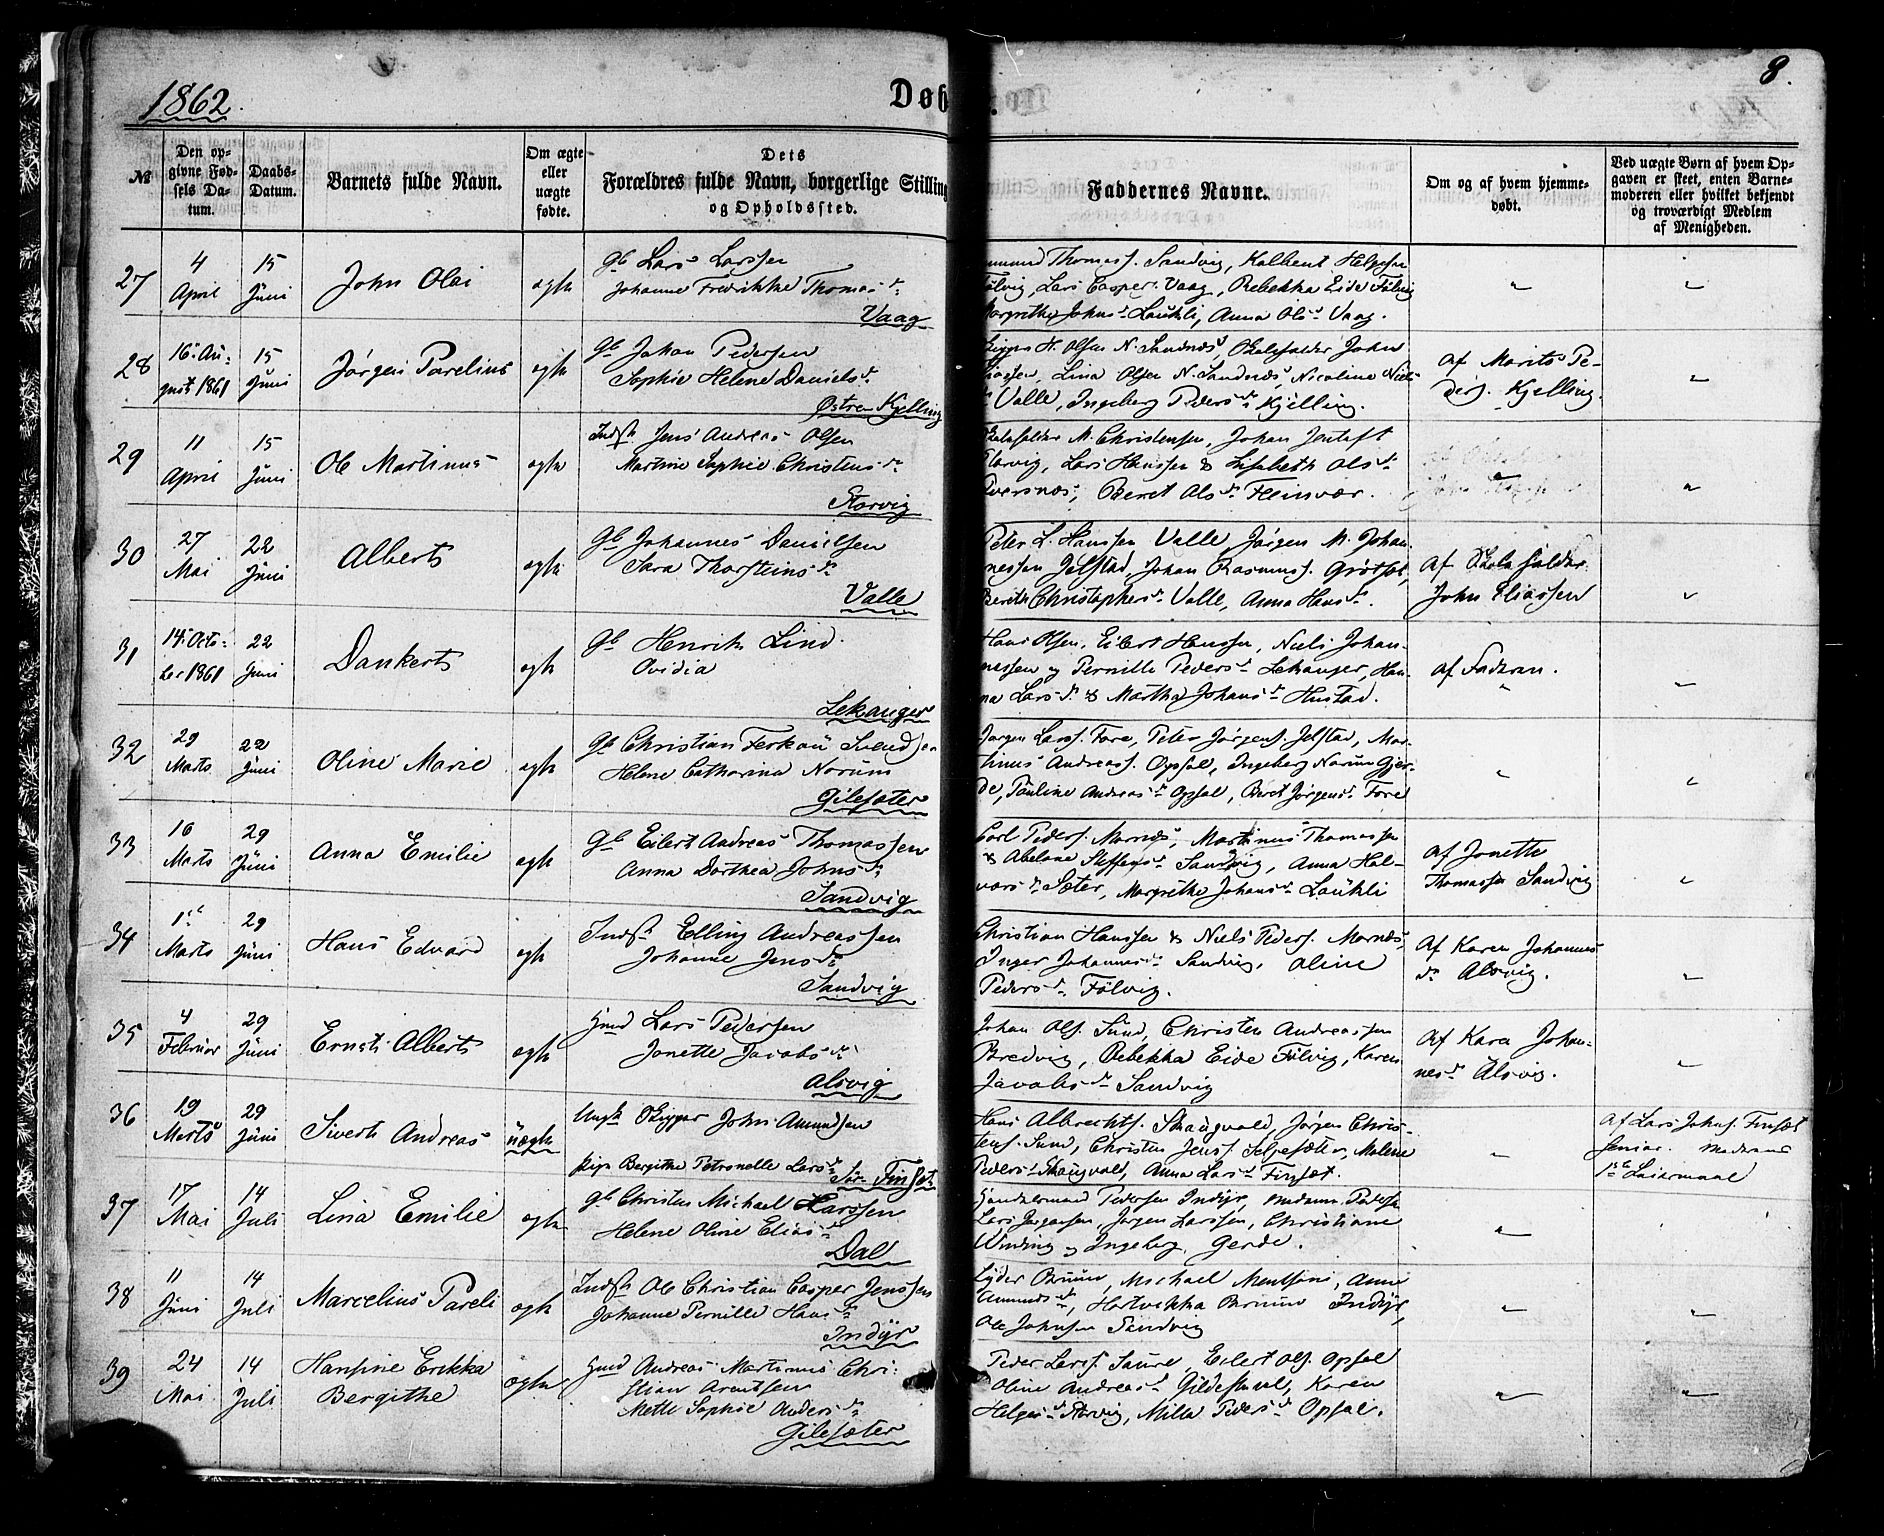 1862.
Døb
8.
№
Den op-
givne Fød-
sels Da-
tum.
Daabs-
Datum.
Barnets fulde Navn.
Om ægte
eller
uægte
fødte.
Dets
Forældres fulde Navn, borgerlige Stilling
og Opholdssted.
Faddernes Navne.
Om og af hvem hjemme-
døbt.
Ved uægte Børn af hvem Op-
gaven er skeet, enten Barne-
moderen eller hvilket bekjendt
og troværdigt Medlem
af Menigheden.
27
4
April
15
Juni
John Olai
ægte
Gb Lars Larssen
Johanne Fredrikke Thomas dr
Vaag
Thomass. Sandvig, Kalbent Helgesen
Fölvig, Lars Casper Vaag, Rebekka Eide Fölvig
Margrethe Johns dr Laukli, Anna Ols dr Vaag.
28
16 Au-
gust 1861
15
Juni
Jørgen Parelius
ægte
Gb Johan Pedersen
Sophie Helene Daniels dr
Østre Kjelling
H. Olsen N. Sandnæs, Skoleholder John
Eliassen, Lina Olsen N. Sandnæs, Nicoline Niels
dr Valle, Ingeberg Peders dr Kjelling.
af Marits Pe-
ders. Kjelling.
29
11
April
15
Juni
Ole Martinus
ægte
Indst Jens Andreas Olsen
Martine Sophie Christens dr
Storvig
Skoleholder M. Christensen, Johan Jentoft
Storvig, Lars Hanssen & Lisbeth Ols dr
Tversnæs, Beret Ols dr Fleinvær.
30
27
Mai
22
Juni
Alberts
ægte
Gb Johannes Danielsen
Sara Thorsteins dr
Valle
Peter L. Hanssen Valle, Jørgen M. Johan-
nessen Jelstad, Johan Rasmuss. Grötset,
Berith Christophers dr Valle, Anna Hans dr.
af Skoleholder
John Eliassen
31
14 Octo-
ber 1861
22
Juni
Dankerts
ægte
Gb Henrik Lind.
Ovidia
Lekanger
Hans Olsen, Eilert Hanssen, Niels Johan-
nessen og Pernille Peders dr Lekanger, Han-
na Lars dr & Martha Johans dr Hustad.
af Faderen.
32
29
Marts
22
Juni
Oline Marie
ægte
Gb Christian Ferkau Svendsen
Helene Catharina Norum
Gilesæter
Jørgen Larss. Fore, Peter Jørgens. Jelstad, Mar-
tinus Andreass. Opsal, Ingeberg Norum Gjer-
de, Pauline Andreas dr Opsal, Beret Jørgens dr Fore
33
16
Marts
29
Juni
Anna Emilie
ægte
Gb Eilert Andreas Thomassen
Anna Dorthea Johns dr
Sandvig
Carl Peders. Mornæs, Martinus Thomassen
& Abelone Steffens dr Sandvig, Anna Hal-
vors dr Sæter, Margrethe Johans dr Laukli
af Jonette
Thomassen Sandvig
34
1ste
Marts
29
Juni
Hans Edvard
ægte
Indst Elling Andreassen
Johanne Jens dr
Sandvig
Christian Hanssen & Niels Peders. Mornæs,
Inger Johannes dr Sandvig, Oline
Peders dr Fölvig.
Af Karen Johannes
dr Alsvig.
35
4
Februar
29
Juni
Ernst Alberts
ægte
Hmd Lars Pedersen
Jonette Jacobs dr
Alsvig
Johan Ols. Sund, Christen Andreassen
Bredvig, Rebekka Eide Fölvig, Karen
Jacobs dr Sandvig
Af Karen Johan-
nes dr Alsvig.
36
19
Marts
29
Juni
Sivert Andreas
uægte
Ungk Skipper John Amundsen
Pige Bergithe Petronelle Lars dr
Sør Finset
Hans Albrechts. Skaugvold, Jørgen Chris-
tens. Sund, Christen Jenss. Selsesæter, Malene
Peders dr Skaugvold, Anna Lars dr Finsæt.
af Lars Johns. Finsæt
senior. Moderens
1ste Leiermaal
37
17
Mai
14
Juli
Lina Emilie
ægte
Gb Christen Michael Larssen
Helene Oline Elias dr
Dal
Handelsmand Pedersen Indyr, Madame Pedersen
Lars Jørgensen, Jørgen Larssen, Christiane
Winding og Ingeberg Gerde.
38
11
Juni
14
Juli
Marcelius Pareli
ægte
Indst Ole Christian Casper Jenssen
Johanne Pernille Hans dr
Indyr
Lyder Bruun, Michael Mentsoni, Anne
Amunds dr, Hartvikka Bruun Indyr,
Ole Johnsen Sandvig
39
24
Mai
14
Juli
Hansine Erikka
Bergithe
ægte
Hmd Andreas Martinus Chri-
stian Arentsen
Mette Sophie Anders dr
Gilesæter
Peder Larss. Saure, Eilert Ols. Opsal
Oline Andreas dr Gildeskaal, Karen
Helges dr Storvig, Milla Peders dr Opsal.